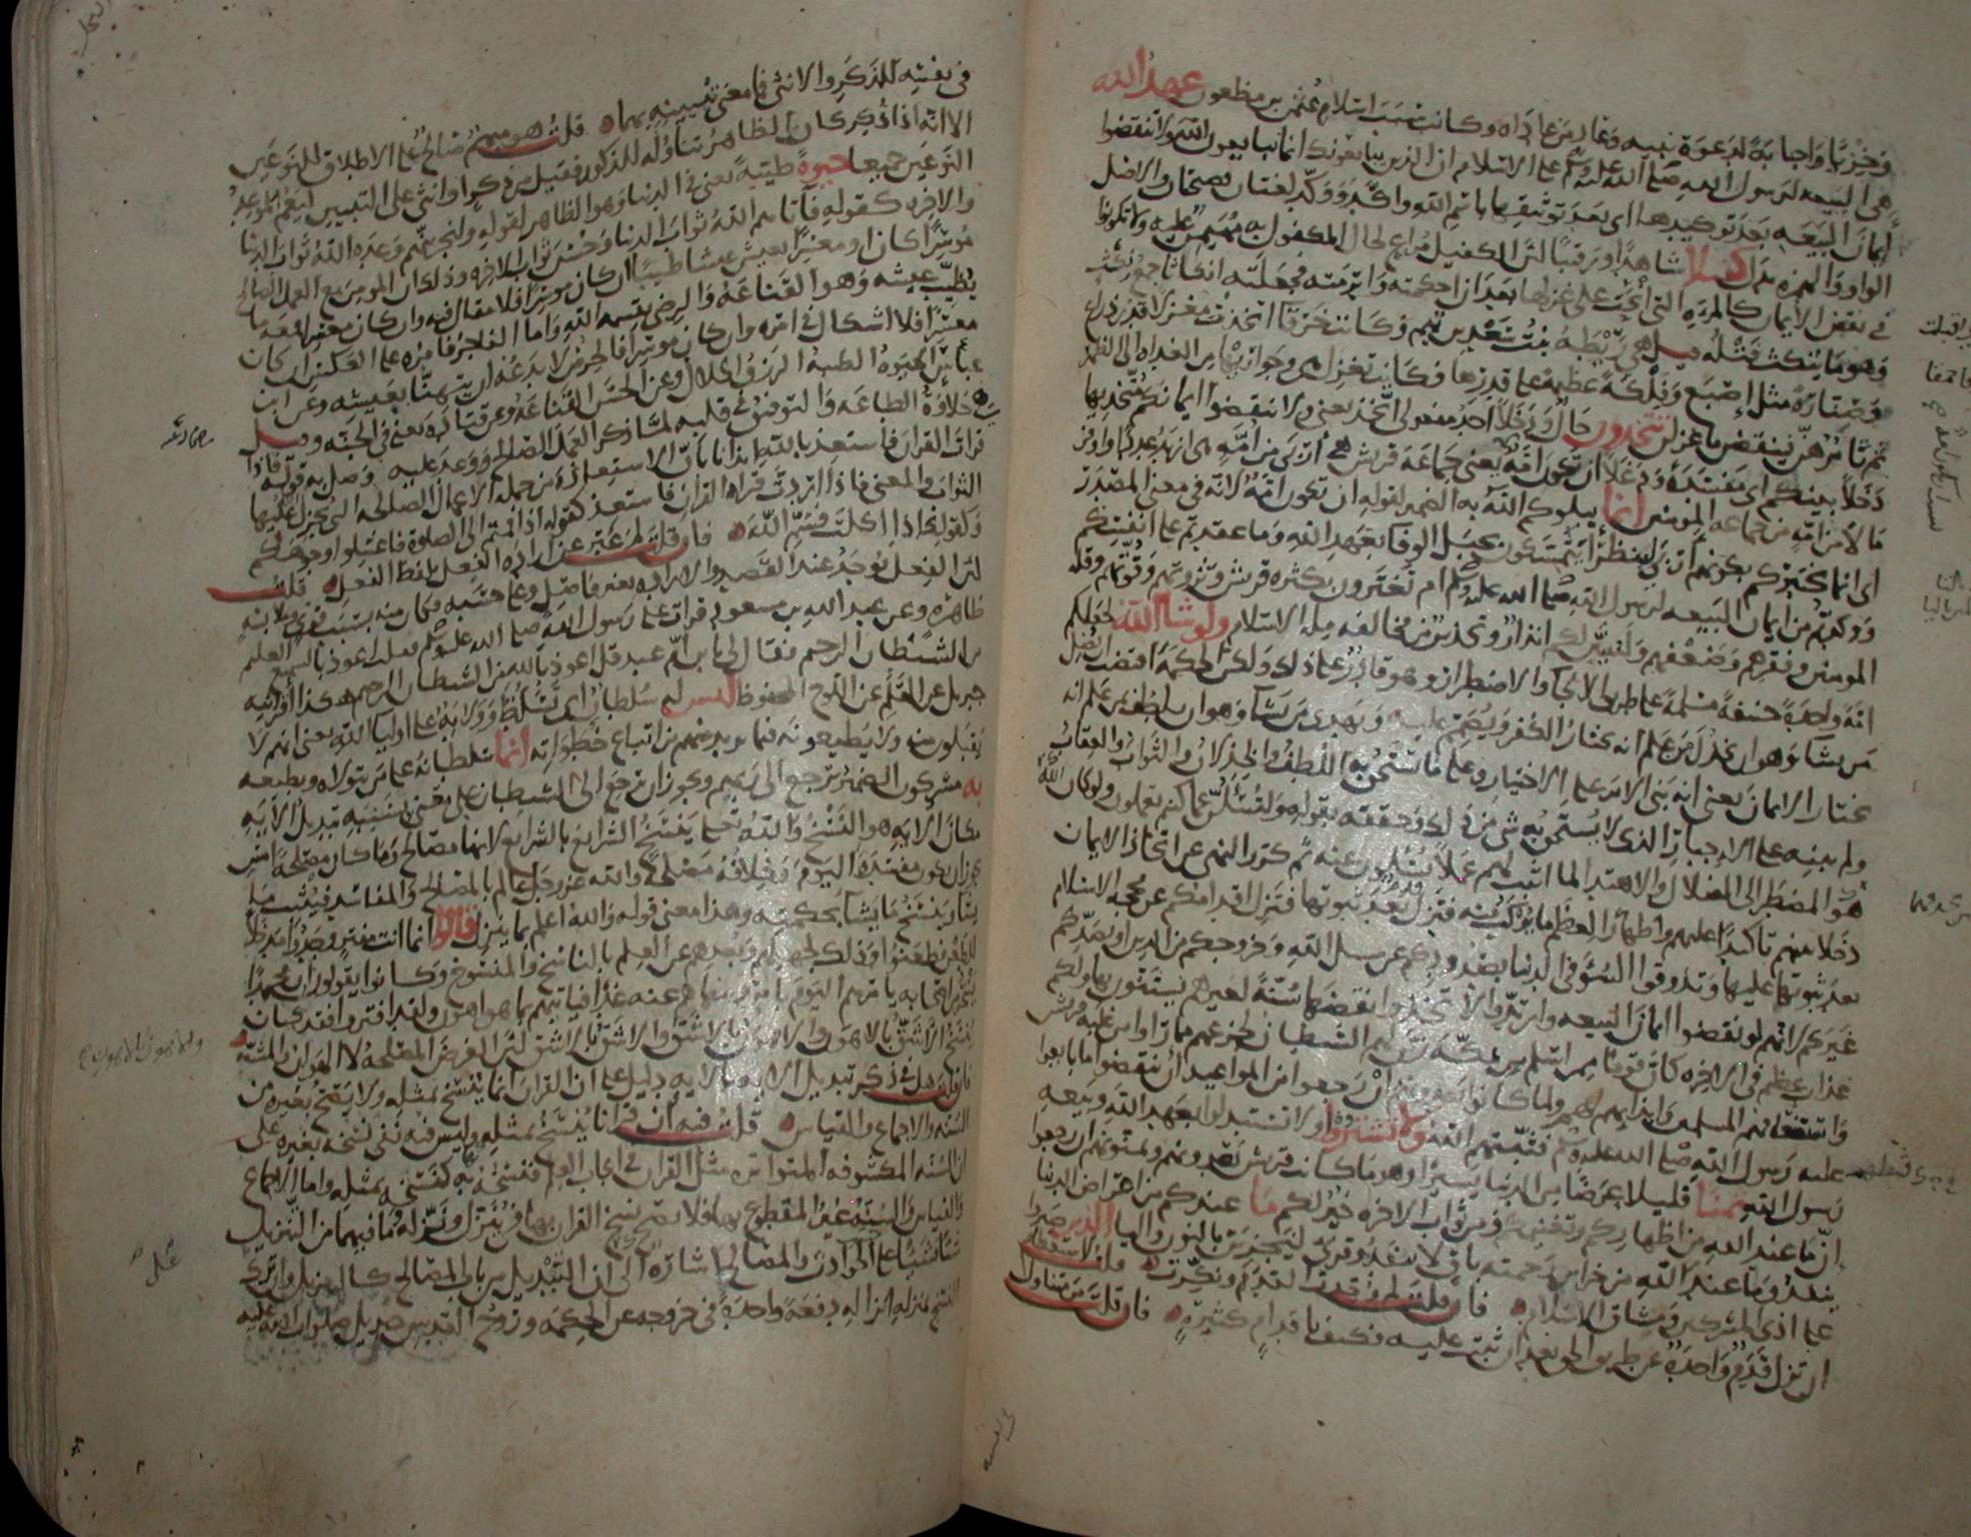 وخزيا واجابة لدعوة نبيه وعاد من عاداه وكانت سبب اسلام عثمن بن مظعون عهد الله
هي البيعه لرسول الله صلى الله عليه وسلم على الاسلام ان الذين يبايعونك انما يبايعون الله ولا تنقضوا
ايمان البيعه بعد توكيدها اى بعد توثيقها باسم الله واكد ووكد لغتان فصيحتان والاصل
الواو والهمزه بدل كفيلا شاهدا ورقيبا لان الكفيل مراع لحال المكفول به مهيمن عليه ولا تكونوا
في نقض الايمان كالمرءه التي انحت على غزلها بعد ان احكمته وابرمته فجعلته انكاثا جمع نكث
وهو ما ينكث فتله قيل هي ريطة بنت سعد بن تيم وكانت خرقا اتخذت مغزلا قدر ذراع
وصنارة مثل اصبع وفلكة عظيمة على قدرها فكانت تغزل هي وجواريها من الغداه الى الظهر
ثم تامرهن ينقضن ما غزلن تتخذون حال ودخلا احد مفعولى اتخذ يعنى ولا تنقضوا ايمانكم متخذيها
دخلا بينكم اى مفسدة ودغلا ان تكون امة يعنى جماعة قريش هى اربى من امة هى ازيد عددا واوفر
مالا من امة من جماعه المومنين انما يبلوكم الله به الضمير لقوله ان تكون امة لانه في معنى المصدر
اى انما يختبركم بكونهم اربى لينظر اتتمسكون بحبل الوفا بعهد الله وما عقدتم على انفسكم
ووكدتم من ايمان البيعه لرسول الله صلى الله عليه وسلم ام تغترون بكثره قريش وثروتهم وقوتهم وقلة
المومنين وفقرهم وضعفهم وليبينن لكم انذار وتحذير من مخالفه ملة الاسلام ولو شا الله لجعلكم
امة واحدة حنيفة مسلمة على طريق الالجا والاضطرار وهو قادر على ذلك ولكن الحكمة اقتضت ان يضل
من يشا وهو ان يخذل من علم انه يختار الكفر ويصمم عليه ويهدى من يشا وهو ان يلطف بمن علم انه
يختار الايمان يعنى انه بنى الامر على الاختيار وعلى ما يستحق به اللطف والخذلان والثواب والعقاب
ولم يبنه على الاجبار الذى لا يستحق به شى من ذلك وحققه بقوله ولتسئلن عما كنتم تعملون ولو كان
هو المضطر الى الضلال والاهتدا لما اثبت لهم عملا يسئلون عنه ثم كرر النهى عن اتخاذ الايمان
دخلا بينهم تاكيدا عليهم واظهارا لعظم ما يركب منه فتزل قدم بعد ثبوتها فتزل اقدامكم عن محجة الاسلام
بعد ثبوتها عليها وتذوقوا السو في الدنيا بصدودكم عن سبيل الله وخروجكم من الدين او بصدكم
غيركم لانهم لو نقضوا ايمان البيعه وارتدوا لاتخذوا نقضها سنة لغيرهم يستنون بها ولكم
عذاب عظيم في الاخره كان قوما ممن اسلم بمكة زين لهم الشيطان لجزعهم مما راوا من غلبة قريش
واستضعافهم المسلمين وايذايهم لهم ولما كانوا يعدونهم ان رجعوا من المواعيد ان ينقضوا ما بايعوا
عليه رسول الله صلى الله عليه وسلم فثبتهم الله ولا تشتروا ولا تستبدلوا بعهد الله وبيعه
رسول الله ثمنا قليلا عرضا من الدنيا يسيرا وهو ما كانت قريش يعدونهم ويمنونهم ان رجعوا
ان ما عند الله من اظهاركم وتغنيمكم ومن ثواب الاخره خير لكم ما عندكم من اعراض الدنيا
ينفد وما عند الله من خزاين رحمته باق لا ينفد وقرى لنجزين بالنون واليا الذين صبروا
على اذى المشركين ومشاق الاسلام فان قلت لم وحدت القدم ونكرت قلت لاستعظام
ان تزل قدم واحدة عن طريق الحق بعد ان ثبتت عليه فكيف باقدام كثيرة فان قلت من متناول
في نفسه للذكر والانثى فما معنى تبيينه بهما قلت هو مبهم صالح على الاطلاق للنوعين
الا انه اذا ذكر كان الظاهر تناوله للذكور فقيل من ذكر او انثى على التبيين ليعم الموعد
النوعين جميعا حيوة طيبة يعنى في الدنيا وهو الظاهر لقوله ولنجزينهم وعده الله ثواب الدنيا
والاخره كقوله فاتاهم الله ثواب الدنيا وحسن ثواب الاخره وذلك ان المومن مع العمل الصالح
موسرا كان او معسرا يعيش عيشا طيبا ان كان موسرا فلا مقال فيه وان كان معسرا فمعه ما
يطيب عيشه وهو القناعة والرضى بقسمه الله واما الفاجر فامره على العكس ان كان
معسرا فلا اشكال في امره وان كان موسرا فالحرص لا يدعه ان يتهنا بعيشه وعن ابن
عباس الحيوة الطيبه الرزق الحلال وعن الحسن القناعة وعن قتاده يعنى في الجنه وقيل
هي حلاوة الطاعه والتوفيق في قلبه لما ذكر العمل الصالح ووعد عليه وصل به قوله فاذا
قرات القران فاستعذ بالله ايذانا بان الاستعاذة من جمله الاعمال الصالحه التى يجزل عليها
الثواب والمعنى فاذا اردت قراه القران فاستعذ كقوله اذا قمتم الى الصلوة فاغسلوا وجوهكم
وكقولك اذا اكلت فسم الله فان قلت لم عبر عن اراده الفعل بلفظ الفعل قلت
لان الفعل يوجد عند القصد والاراده بغير فاصل وعلى حسبه فكان منه بسبب قوى وملابسة
ظاهره وعن عبد الله بن مسعود قرات على رسول الله صلى الله عليه وسلم فقلت اعوذ بالسميع العليم
من الشيطان الرجيم فقال لى يا ابن ام عبد قل اعوذ بالله من الشيطان الرجيم هكذا اقرانيه
جبريل عن القلم عن اللوح المحفوظ ليس له سلطان اى تسلط وولاية على اوليا الله يعنى انهم لا
يقبلون منه ولا يطيعونه فيما يريد منهم من اتباع خطواته انما سلطانه على من يتولاه ويطيعه
به مشركون الضمير يرجع الى ربهم ويجوز ان يرجع الى الشيطان على معنى بسببه تبديل الايه
مكان الايه هو النسخ والله تعالى ينسخ الشرايع بالشرايع لانها مصالح وما كان مصلحة امس
يجوز ان يكون مفسدة اليوم وخلافه مصلحة والله عز وجل عالم بالمصالح والمفاسد فيثبت ما
يشا وينسخ ما يشا بحكمته وهذا معنى قوله والله اعلم بما ينزل قالوا انما انت مفتر وجدوا مدخلا
للطعن فطعنوا وذلك لجهلهم وبعدهم عن العلم بالناسخ والمنسوخ وكانوا يقولون ان محمدا
يسخر باصحابه يامرهم اليوم بامر وينهاهم عنه غدا فياتيهم بما هو اهون ولقد افتروا فقد كان
ينسخ الاشق بالاهون والاهون بالاشق والاشق بالاشق لان الغرض المصلحة لا الهوان والمشقة
فان قلت هل في ذكر تبديل الايه بالايه دليل على ان القران انما ينسخ بمثله ولا يصح بغيره من
السنه والاجماع والقياس قلت فيه ان قرانا ينسخ بمثله وليس فيه نفى نسخه بغيره على
ان السنه المكشوفه المتواتره مثل القران في ايجاب العلم فنسخه بها كنسخه بمثله واما الاجماع
والقياس والسنه غير المقطوع بها فلا يصح نسخ القران بها في ينزل ونزله وما فيهما من التنزيل
شيئا فشيئا على الحوادث والمصالح اشارة الى ان التبديل من باب المصالح كالتنزيل وان ترك
النسخ بمنزله انزاله دفعة واحدة في خروجه عن الحكمه وروح القدس جبريل صلوات الله عليه
والاهون بالاهون